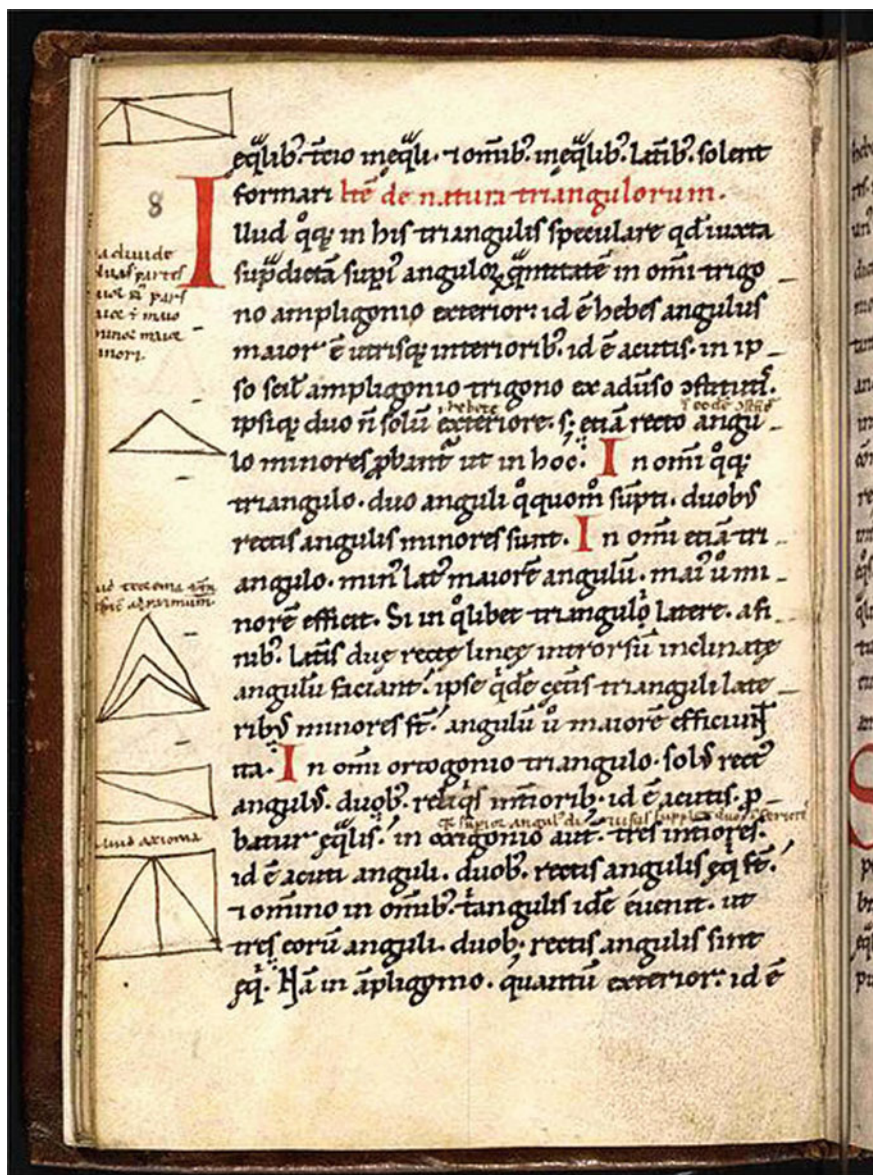 eqlib᾽. t̄cio ineq̄li. ⁊ om̄ib᾽. ineq̄lib᾽. Lat̄ib᾽. solent
formari Ite͂ de natura triangulorum.
8
Illud qͦq; in his triangulis speculare qd̄ iuxta
sup̄dictā supi᾽ anguloꝝ q̄ntitatē in om̄i trigo
no ampligonio exterior: id ē hebes angulus
maior ē utrisq; interiorib᾽. id ē acutis. in ip
so scil̄ ampligonio trigono ex aduso ↄstituti.
hebete
ipsiq; duo n̄ solū exteriore. s; etiā recto angu
lo minores ꝓbant᾽ ut in hoc. In om̄i qͦq;
triangulo. duo anguli qͦquom̊ sūpti. duobꝰ
rectis angulis minores sunt. In om̄i etiā tri
angulo. min᾽ lat᾽ maiorē angulū. mai᾽ ů mi
norē efficit. Si in qͦlibet triangulo latere. a fi
nib᾽. Lat̄is duę rectę linęę introrsū inclinatę
angulū faciant. ipse q̇dē cęt̄is trianguli late
ribꝰ minores st̄. angulū ů maiorē efficiunt
ita. In om̄i ortogonio triangulo. solꝰ rectꝰ
angulꝰ. duob᾽. reliq̇s int̄iorib᾽. id ē acutis. ꝓ
batur eq̄lis. in oxigonio aut̄. tres int̄iores.
id ē acuti anguli. duob᾽. rectis angulis ęq̇ st̄.
⁊ om̄ino in om̄ib᾽. t̄angulis idē euenit. ut
tres eorū anguli. duob; rectis angulis sint
ęq̇. Nā in āpligonio. quantū exterior: id ē
a diuide
duas partes
pars
maio
maior
inori.
aliud axioma